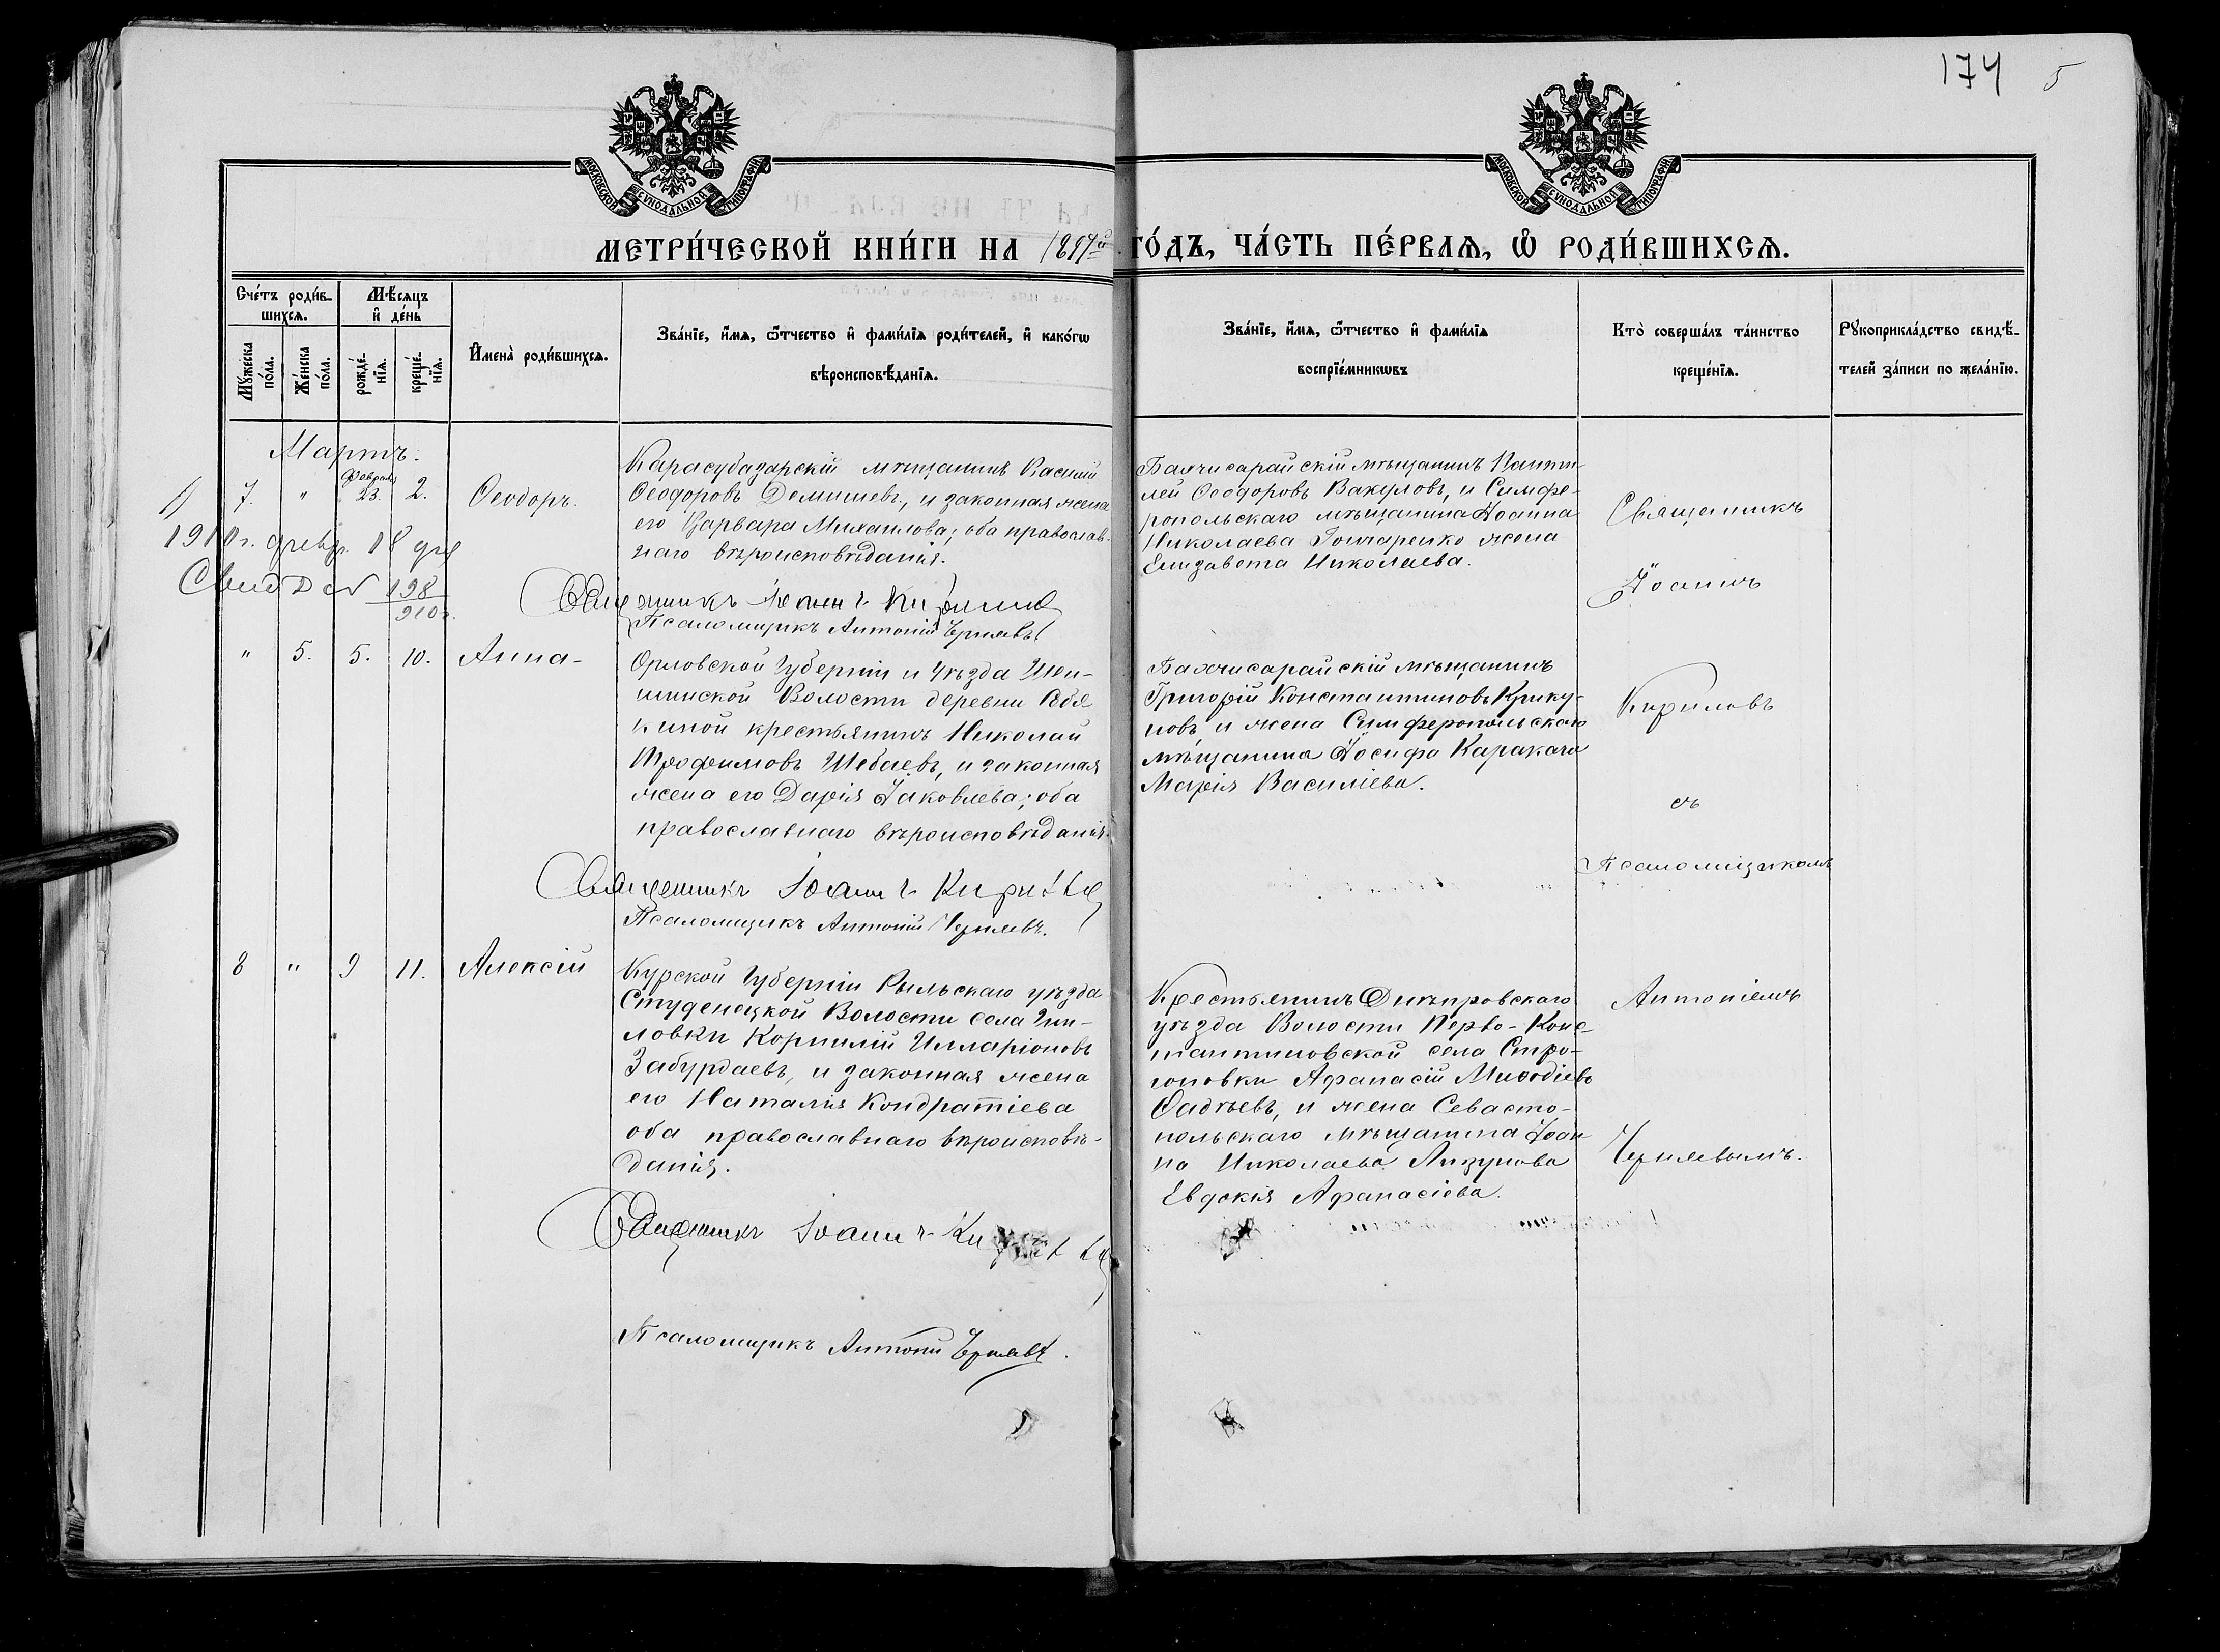 174 5
МОСКОВСКОЙ СУНОДАЛЬНОЙ ТИПОГРАФІИ
МОСКОВСКОЙ СУНОДАЛЬНОЙ ТИПОГРАФІИ
МЕТРИ́ЧЕСКОЙ КНИ́ГИ НА 1894й ГО́ДЪ, ЧА́СТЬ ПЕ́РВАѦ, Ѡ҆ РОДИ́ВШИХСѦ.
Сче́тъ роди́в-
шихсѧ.
Мꙋ́жеска по́ла.
Же́нска по́ла.
Мѣ́сѧцъ
и҆ де́нь
рожде́-нїѧ.
креще́-нїѧ.
И҆мена̀ роди́вшихсѧ.
Зва́нїе, и҆́мѧ, ѻ҆́тчество и҆ фами́лїѧ роди́телей, и҆ како́гѡ
вѣроисповѣ́данїѧ.
Зва́нїе, и҆́мѧ, ѻ҆́тчество и҆ фами́лїѧ
воспрїе́мникѡвъ
Кто̀ соверша́лъ та́инство
креще́нїѧ.
Рꙋкоприкла́дство свидѣ́-
телей за́писи по жела́нїю.
Мартъ.
1)
7. " Февраля 23. 2. Ѳеодоръ.
Карасубазарскій мѣщанинъ Василій
Ѳеодоровъ Демишевъ, и законная жена
его Варвара Михаилова; оба православ-
наго вѣроисповѣданія.
1910 г. февр. 18 дня
Свид № 198
910 г.
Священникъ Іоаннъ Кириловъ
Псаломщикъ Антоній Чернявъ
Бахчисарайскій мѣщанинъ Панте-
лей Ѳеодоровъ Вакуловъ, и Симфе-
ропольскаго мѣщанина Іоанна
Николаева Гончаренко жена
Елизавета Николаева.
" 5. 5. 10. Анна-
Орловской Губерніи и Уѣзда Шен-
шинской Волости деревни
киной крестьянинъ Николай
Трофимовъ Шебаевъ, и законная
жена его Дарія Іаковлева; оба
православнаго вѣроисповѣданія.
Священникъ Іоаннъ Кириловъ
Псаломщикъ Антоній Чернявъ.
Бахчисарайскій мѣщанинъ
Григорій Константиновъ Крику-
новъ, и жена Симферопольскаго
мѣщанина Іосифа Каракача
Марія Василіева.
8 " 9 11. Алексій
Курской Губерніи Рыльскаго уѣзда
Студенецкой Волости села
ловки Корнилій Илларіоновъ
Забурдаевъ, и законная жена
его Наталія Кондратіева
оба православнаго вѣроисповѣ-
данія.
Священникъ Іоаннъ Кириловъ
Псаломщикъ Антоній Чернявъ.
Крестьянинъ Днѣпровскаго
уѣзда Волости Перво-Конс-
тантиновской села Стро-
гоновки Афанасій Меѳодіевъ
Ѳадѣевъ, и жена Севасто-
польскаго мѣщанина Іоан-
на Николаева Лизунова
Евдокія Афанасіева.
Священникъ
Іоаннъ
Кириловъ
съ
Псаломщикомъ
Антоніемъ
Чернявымъ.